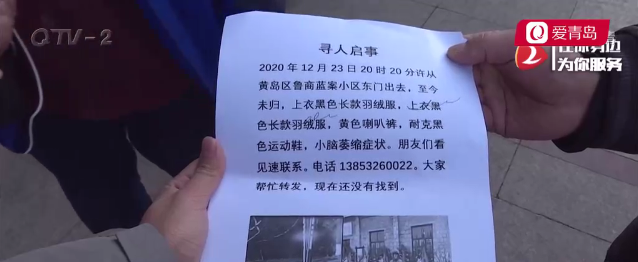 QTV-2
爱青岛
2
在你身边
为你服务
寻人启事
2020 年 12 月 23 日 20 时 20 分许从
黄岛区鲁商蓝案小区东门出去，至今
未归，上衣黑色长款羽绒服，上衣黑
色长款羽绒服，黄色喇叭裤，耐克黑
色运动鞋，小脑萎缩症状。朋友们看
见速联系。电话 13853260022。大家
帮忙转发，现在还没有找到。